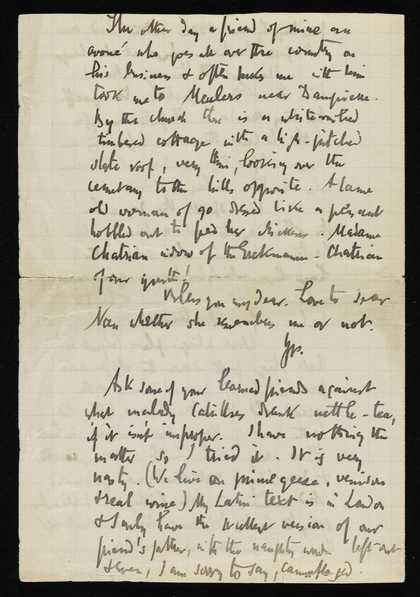 The other day a friend of mine an
avoué who goes all over the country on
his business & often takes me with him
took me to near Dampierre.
By the church there is a white-washed
timbered cottage with a high-pitched
slate roof, very thin, looking over the
cemetery to the hills opposite. A lame
old woman of 90 dressed like a peasant
hobbled out to feed her chickens. Madame
Chatrian widow of the Erckmann-Chatrian
of our youth!
Bless you my dear. Love to dear
Nan whether she remembers me or not.
Yrs.
Ask some of your learned friends against
what malady Catullus drank nettle-tea,
if it isn't improper. I have nothing the
matter so I tried it. It is very
nasty. (We live on geese, venison
& real wine) My Latin text is in London
& I only have the version of our
friend's father, with the naughty words left-out
& even, I am sorry to say, camouflaged.